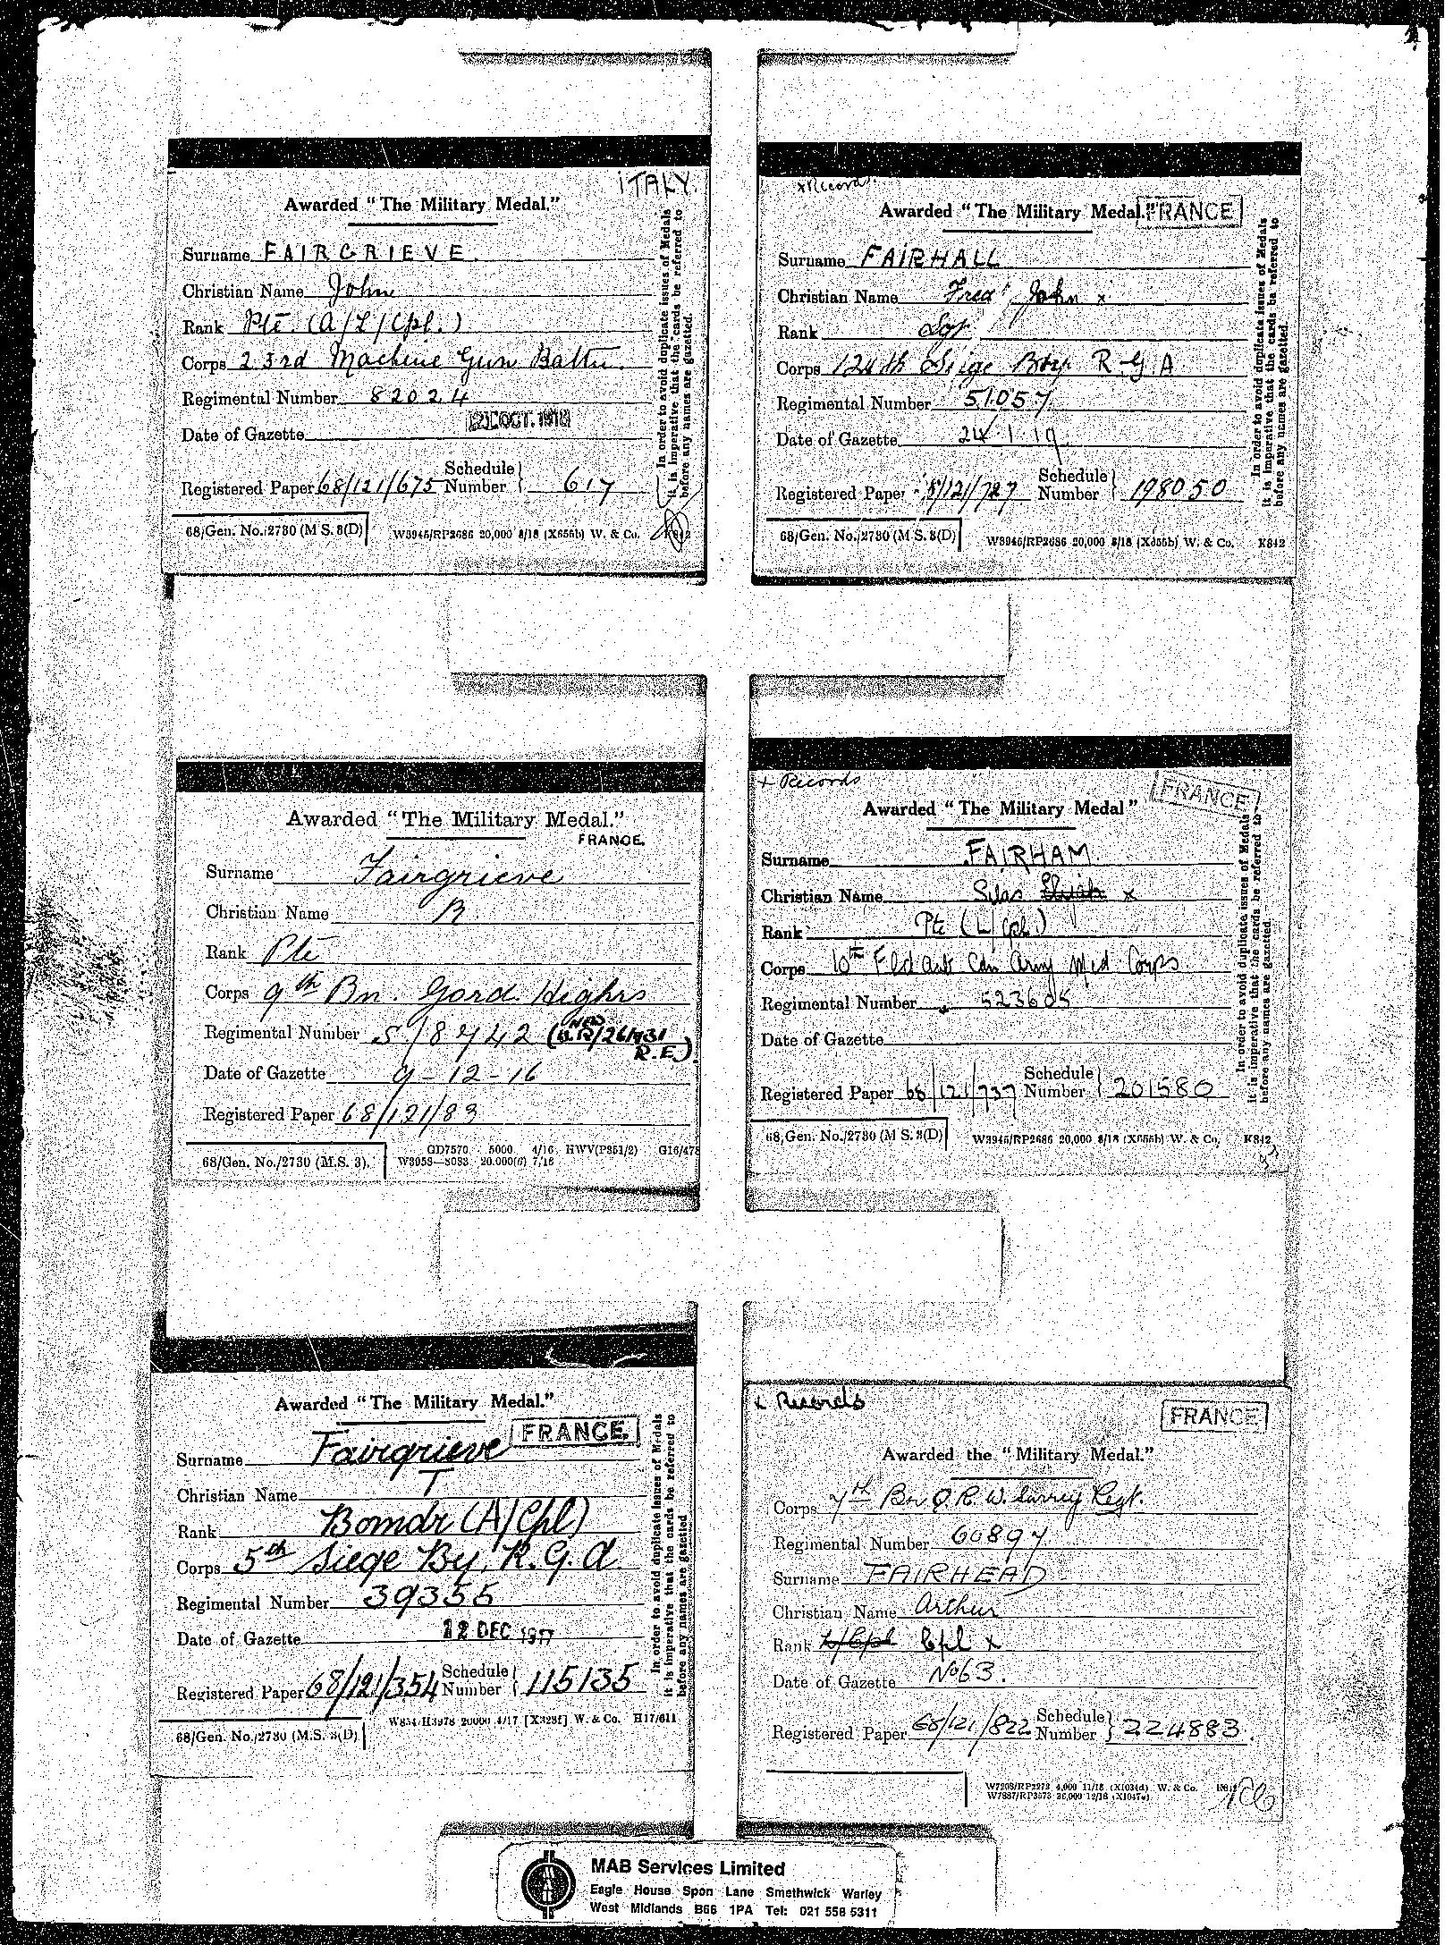 ITALY.
Awarded "The Military Medal."
Surname FAIRGRIEVE.
Christian Name John
Rank Pte (A/L/Cpl.)
Corps 23rd Machine Gun Battn.
Regimental Number 82024
Date of Gazette 21 OCT. 1918
Registered Paper 68/121/675 Schedule Number } 617
68/Gen. No./2730 (M S. 3(D)
W3946/RP2686 20,000 8/18 (X655b) W. & Co. K842
In order to avoid duplicate issues of Medals
it is imperative that the cards be referred to
before any names are gazetted.
x Record
Awarded "The Military Medal." FRANCE
Surname FAIRHALL
Christian Name Fred John x
Rank Sgt
Corps 124th Siege Bty. R.G.A
Regimental Number 51057
Date of Gazette 24.1.19
Registered Paper 8/121/727 Schedule Number } 198050
68/Gen. No./2730 (M S. 3(D)
W3946/RP2686 20,000 8/18 (X655b) W. & Co. K842
In order to avoid duplicate issues of Medals
it is imperative that the cards be referred to
before any names are gazetted.
Awarded "The Military Medal."
FRANCE.
Surname Fairgrieve
Christian Name R
Rank Pte
Corps 9th Bn. Gord. Highrs
Regimental Number S/8742 (NEW
/26/1731
R.E.)
Date of Gazette 9-12-16
Registered Paper 68/121/83
68/Gen. No./2730 (M.S. 3).
GD7570 5000 4/16 HWV(P351/2) G16/478
20.000(6) 7/16
+ Records
FRANCE
Awarded "The Military Medal"
Surname FAIRHAM
Christian Name Silas x
Rank Pte (L/Cpl)
Corps 10th Fld Amb Can Army Med Corps
Regimental Number 523605
Date of Gazette
Registered Paper 68/121/737 Schedule Number } 201580
68/Gen. No./2730 (M S. 3(D)
W3946/RP2686 20,000 8/18 (X655b) W. & Co. K842
In order to avoid duplicate issues of Medals
it is imperative that the cards be referred to
before any names are gazetted.
Awarded "The Military Medal."
FRANCE.
Surname Fairgrieve
Christian Name T
Rank Bomdr (A/Cpl)
Corps 5th Siege By, R.G.A.
Regimental Number 39355
Date of Gazette 12 DEC 1917
Registered Paper 68/121/354 Schedule Number } 115135
68/Gen. No./2730 (M.S. 3(D)
20000 4/17 W. & Co. H17/611
In order to avoid duplicate issues of Medals
it is imperative that the cards be referred to
before any names are gazetted
x Records
FRANCE
Awarded the "Military Medal."
Corps 7th Bn Q.R.W. Surrey Regt.
Regimental Number 60897
Surname FAIRHEAD
Christian Name Arthur
Rank L/Cpl Cpl x
Date of Gazette No 63.
Registered Paper 68/121/822 Schedule Number } 224883.
W7208/RP2272 4,000 11/18 (X1034d) W. & Co.
W7887/RP3573 26,000 12/18 (X1047a)
MAB Services Limited
Eagle House Spon Lane Smethwick Warley
West Midlands B66 1PA Tel: 021 558 5311